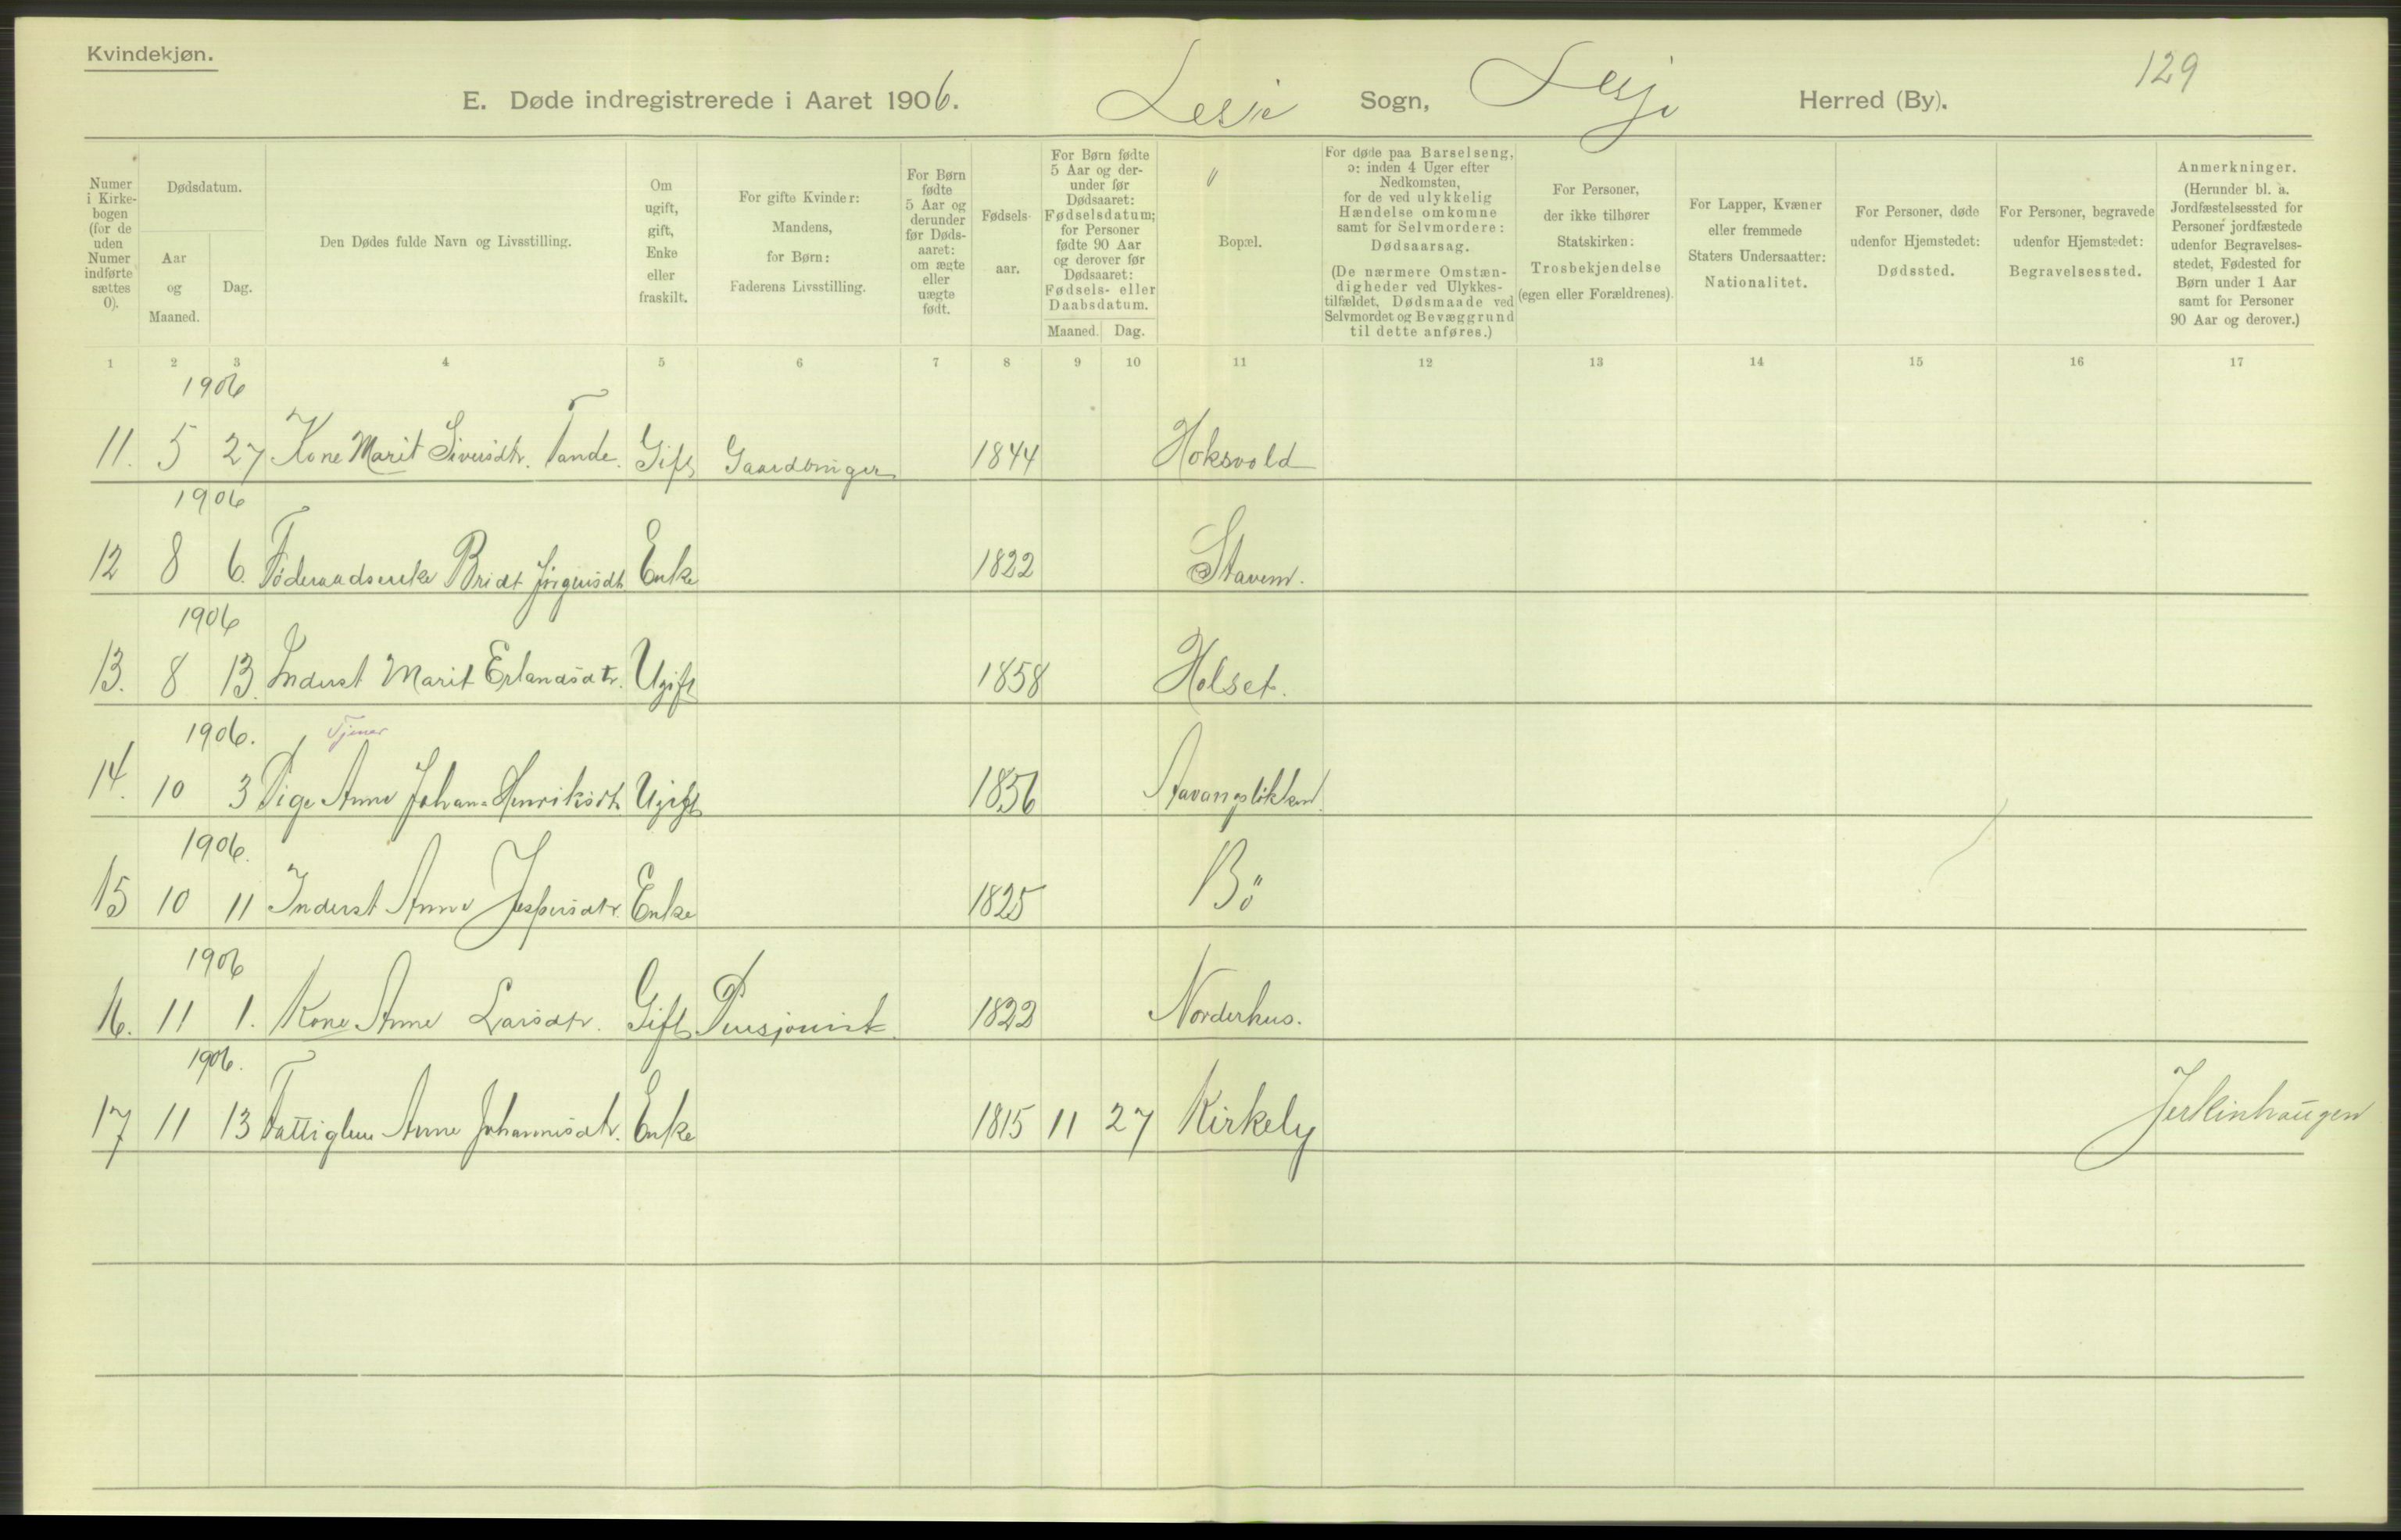 Kvindekjøn.
129
E. Døde indregistrerede i Aaret 1906. Lesje Sogn, Lesje Herred (By).
Numer i Kirkebogen (for de uden Numer indførte sættes 0).
Dødsdatum.
Aar og Maaned.
Dag.
Den Dødes fulde Navn og Livsstilling.
Om ugift, gift, Enke eller fraskilt.
For gifte Kvinder: Mandens, for Børn: Faderens Livsstilling.
For Børn fødte 5 Aar og derunder før Dødsaaret: om ægte eller uægte født.
Fødselsaar.
For Børn fødte 5 Aar og derunder før Dødsaaret: Fødselsdatum; for Personer fødte 90 Aar og derover før Dødsaaret: Fødsels- eller Daabsdatum.
Maaned. Dag.
Bopæl.
For døde paa Barselseng, ɔ: inden 4 Uger efter Nedkomsten, for de ved ulykkelig Hændelse omkomne samt for Selvmordere: Dødsaarsag.
(De nærmere Omstændigheder ved Ulykkestilfældet, Dødsmaade ved Selvmordet og Bevæggrund til dette anføres.)
For Personer, der ikke tilhører Statskirken: Trosbekjendelse (egen eller Forældrenes).
For Lapper, Kvæner eller fremmede Staters Undersaatter: Nationalitet.
For Personer, døde udenfor Hjemstedet: Dødssted.
For Personer, begravede udenfor Hjemstedet: Begravelsessted.
Anmerkninger. (Herunder bl. a. Jordfæstelsessted for Personer jordfæstede udenfor Begravelsesstedet, Fødested for Børn under 1 Aar samt for Personer 90 Aar og derover.)
1 2 3 4 5 6 7 8 9 10 11 12 13 14 15 16 17
1906
11. 5 27 Kone Marit Siversdtr. Tande. Gift Gaardbruger 1844 Hoksvold
1906
12 8 6. Föderaadsenke Bridt Jörgensdt Enke 1822 Stavem.
1906
13. 8 13. Inderst Marit Erlandsdtr. Ugift 1858 Holset.
1906. Tjener
14. 10 3 Pige Anne Johan= Henriksdt. Ugift 1856 Stavangslökken.
1906.
15 10 11 Inderst Anne Jespersdtr. Enke 1825 Bö
1906
16. 11 1. Kone Anne Larsdtr. Gift Pensjonist. 1822 Norderhus.
1906.
17 11 13 Fattiglem Anne Johannesdtr. Enke 1815 11 27 Kirkely Jerkinhaugen